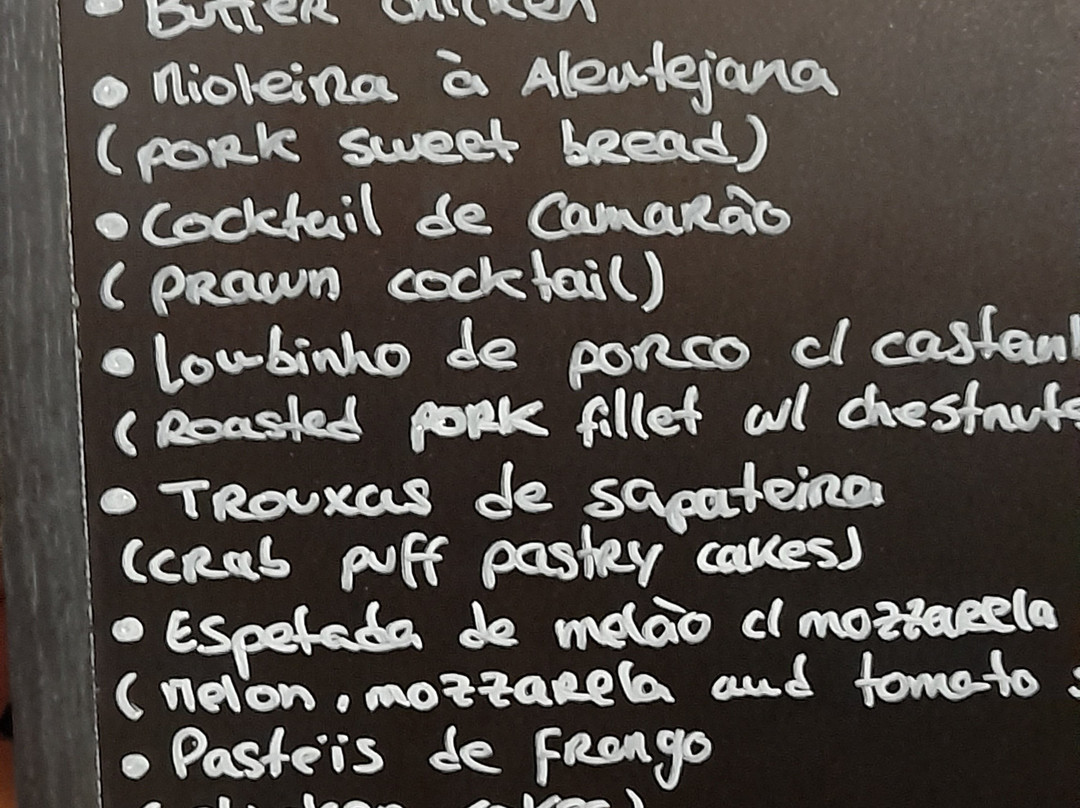 • Butter chicken
• Mioleira à Alentejana
(pork sweet bread)
• Cocktail de Camarão
(prawn cocktail)
• Lombinho de porco c/ castanh
(Roasted pork fillet w/ chestnuts
• Trouxas de sapateira
(crab puff pastry cakes)
• Espetada de melão c/ mozzarela
(Melon, mozzarela and tomato s
• Pastéis de Frango
(chicken cakes)